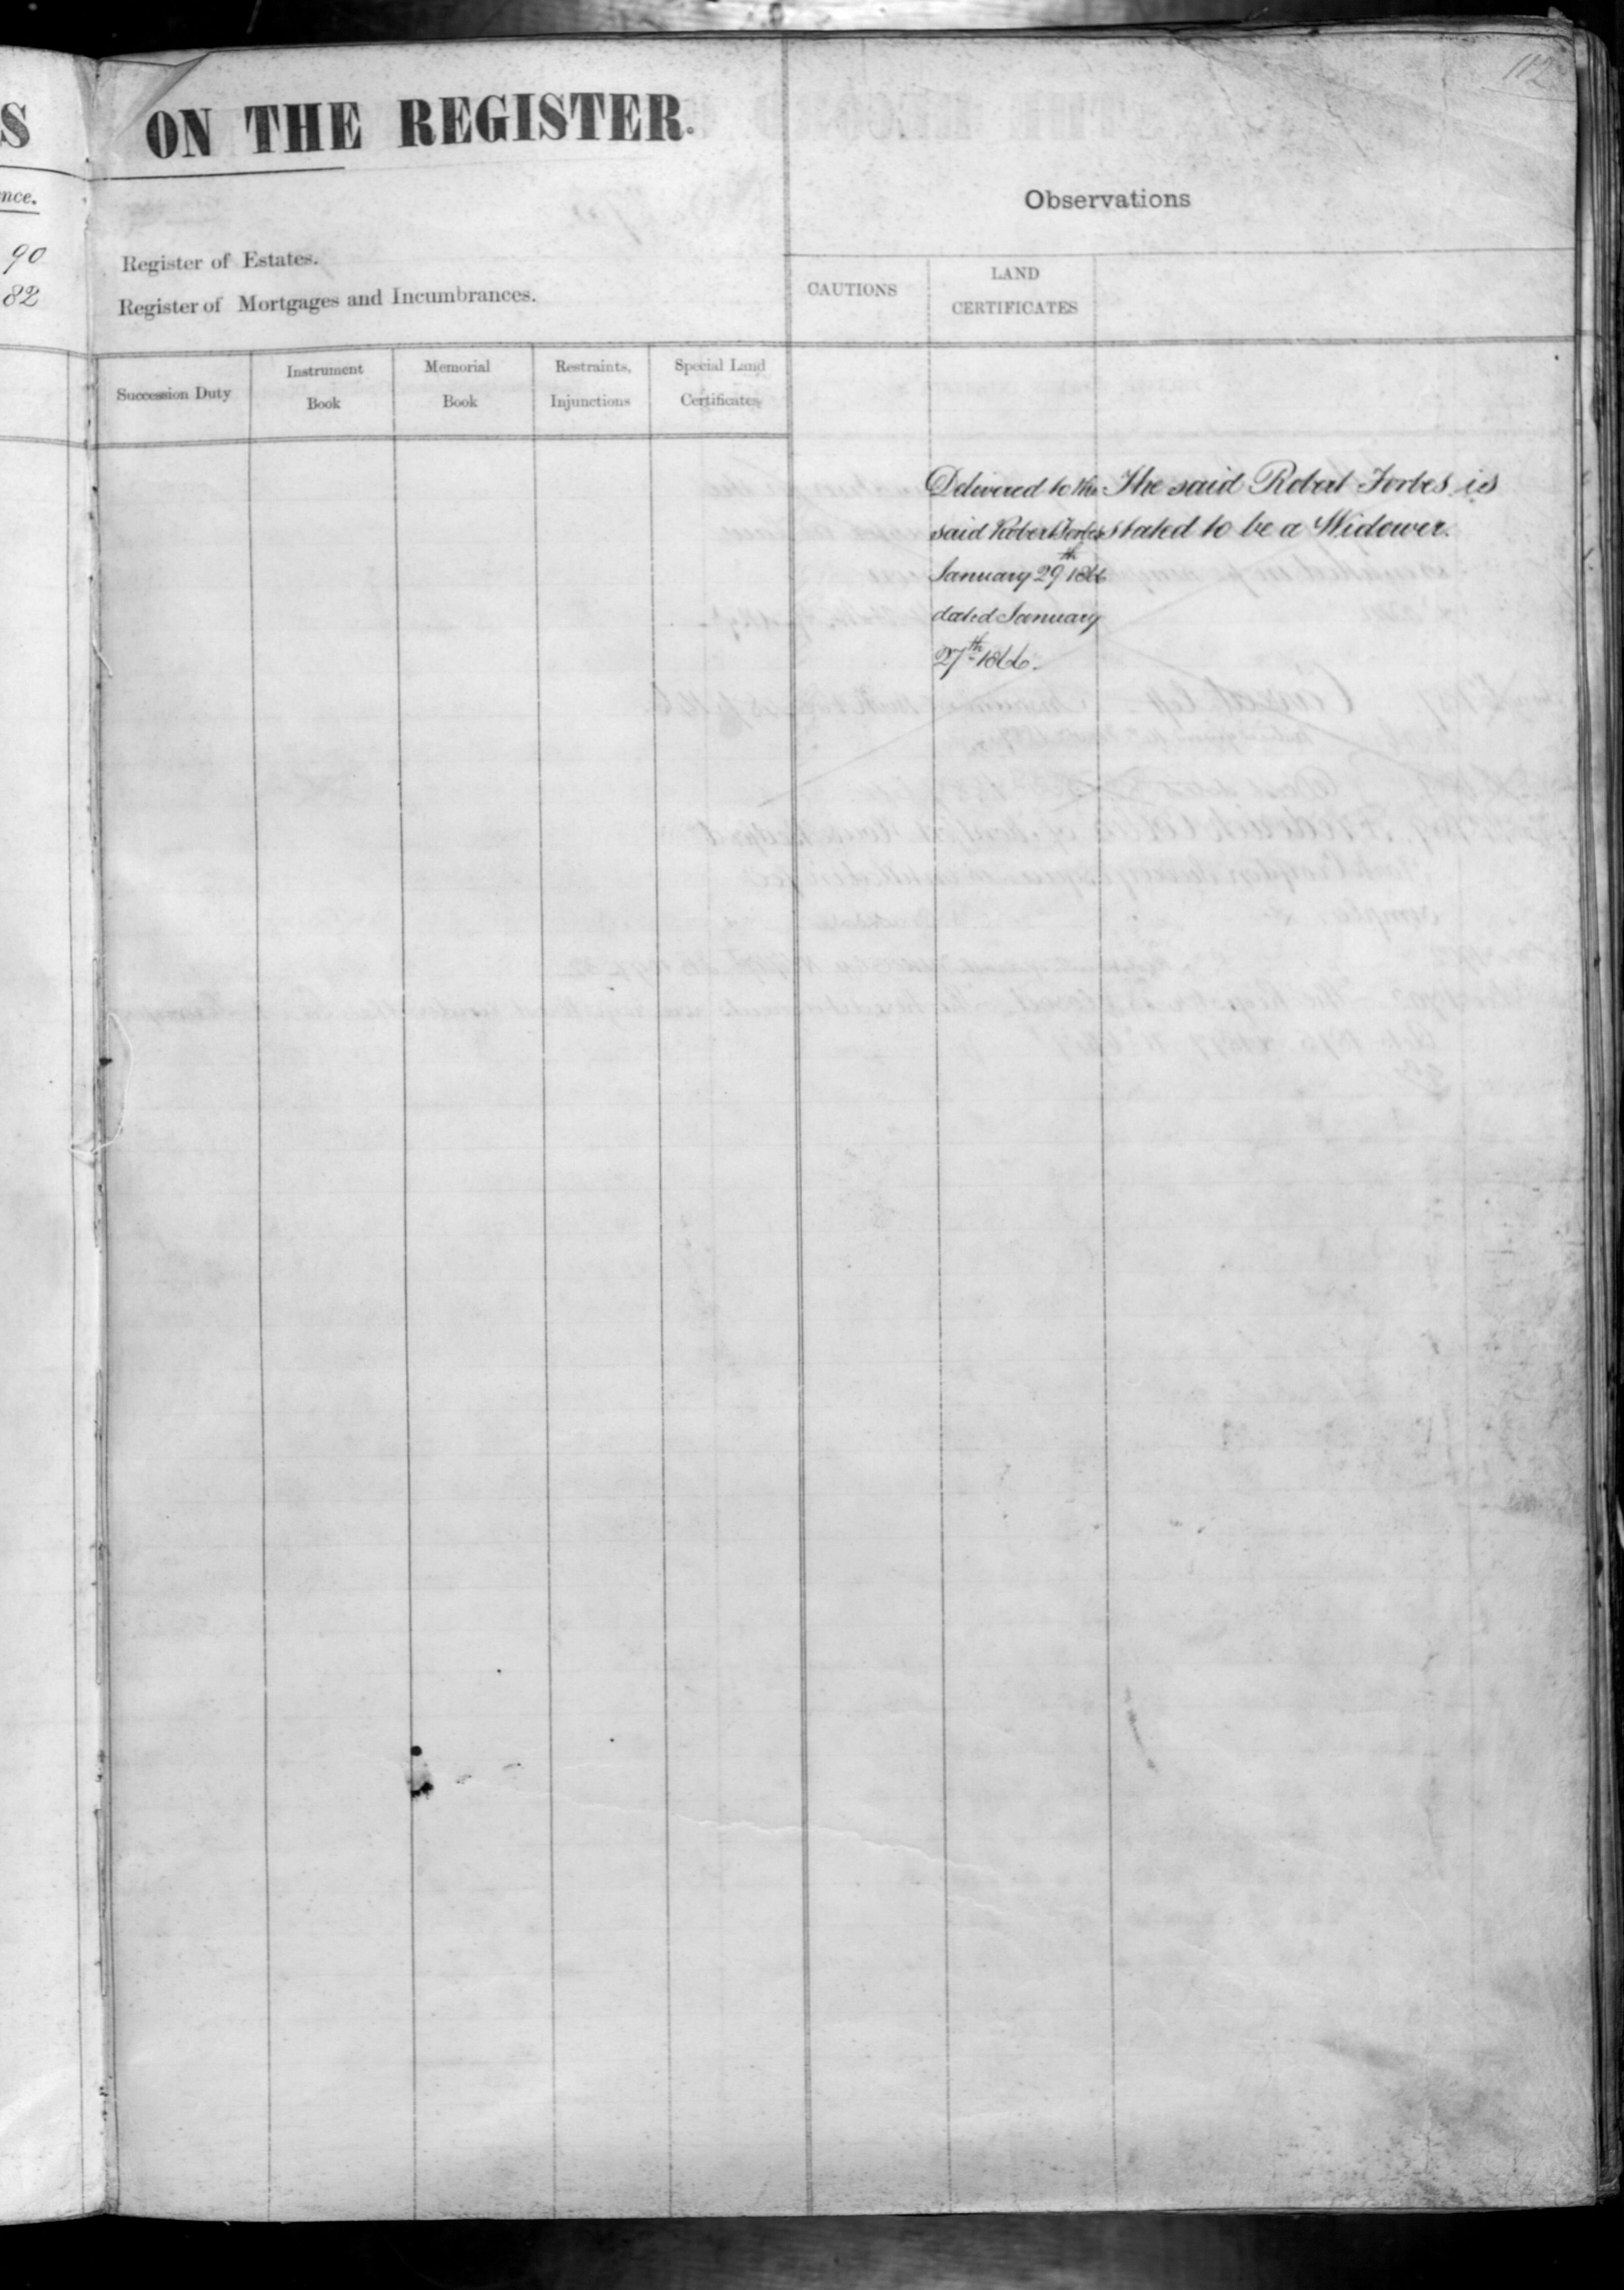 112
S
ON THE REGISTER.
nce.
Observations
90
Register of Estates.
82
Register of Mortgages and Incumbrances.
CAUTIONS
LAND
CERTIFICATES
Succession Duty
Instrument
Book
Memorial
Book
Restraints,
Injunctions
Special Land
Certificates
Delivered to the
said Robert Forbes
January 29th 1866
dated January
27th 1866.
The said Robert Forbes is
stated to be a Widower.